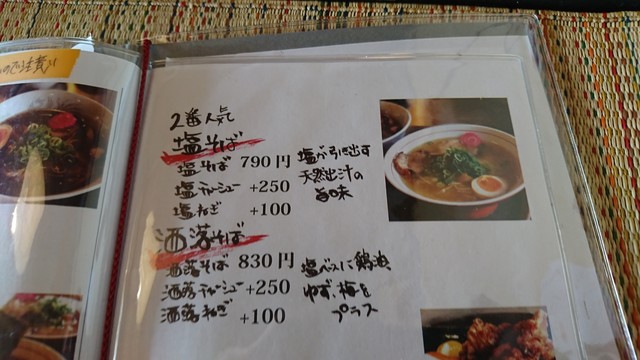 2番人気
塩そば
塩そば 790円
塩チャーシュー +250
塩ねぎ +100
塩が引き出す
天然出汁の
旨味
洒落そば
洒落そば 830円
洒落チャーシュー +250
洒落ねぎ +100
塩ベースに鶏油
ゆず、梅を
プラス